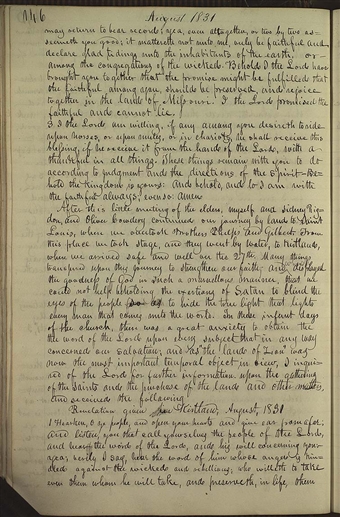 146 August 1831
may return to bear record, yea, even altogether, or two by two as
seemeth you good; it mattereth not unto me, only be faithful and
declare glad tidings unto the inhabitants of the earth, or
among the congregations of the wicked. Behold I the Lord have
brought you together that the promise might be fulfilled that
the faithful among you, should be preserved, and rejoice
together in the land of Missouri. I the Lord promised the
faithful and cannot lie.
I the Lord am willing, if any among you desireth to ride
upon horses, or upon mules, or in chariots, he shall receive this
blessing, if he receive it from the hand of the Lord, with a
thankful in all things. These things remain with you to do
according to judgment and the directions of the Spirit. Be-
hold the kingdom is yours: and behold, and lo I am with
the faithful always; even so: Amen
After this little meeting of the elders, myself and Sidney Rig-
don, and Oliver Cowdery continued our journey by land to Saint
Louis, where we overtook Brothers Phelps and Gilbert. From
this place we took stage, and they went by water, to Kirtland,
where we arrived safe and well on the 27th. Many things
transpired upon this journey to strengthen our faith, and displayed
the goodness of God in such a marvelous manner, that we
could not help beholding the exertions of Satan to blind the
eyes of the people to hide the true light that lights
every man that comes into the world. In these infant days
of the church, there was a great anxiety to obtain the
the word of the Lord upon every subject that in any way
concerned our salvation; and as the land of Zion was
now the most important temporal object in view, I inquir-
ed of the Lord for further information upon the gathering
of the Saints and the purchase of the land and other matters,
and received the following
Revelation given Kirtland, August, 1831
1 Hearken, O ye people, and open your hearts and give ear from afar;
and listen, you that call yourselves the people of the Lord,
and hear the word of the Lord, and his will concerning you:
yea, verily I say, hear the word of him whose anger is kin-
dled against the wicked and rebellious; who willeth to take
even them whom he will take, and preserveth in life, them